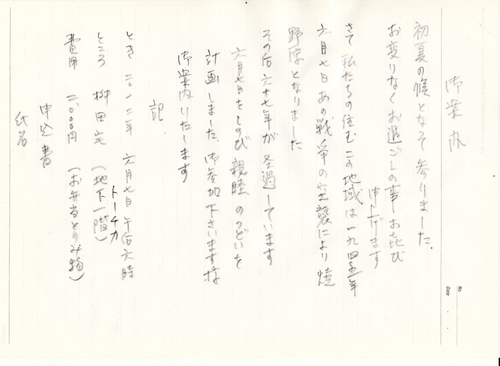 御案内
初夏の候となって参りました。
お変りなくお過ごしの事お喜び
申し上げます
さて私たちの住むこの地域は一九四五年
六月七日あの戦争の空襲により焼
野原となりました
その后六十七年が経過しています
六月七日をしのび親睦のつどいを
計画しました。御参加下さいます様
御案内いたします
記
とき 二〇一二年 六月七日 午后六時
ところ 柳田宅 (地下一階)
トーチカ
費用 二〇〇〇円 (お弁当とのみ物)
申込書
氏名